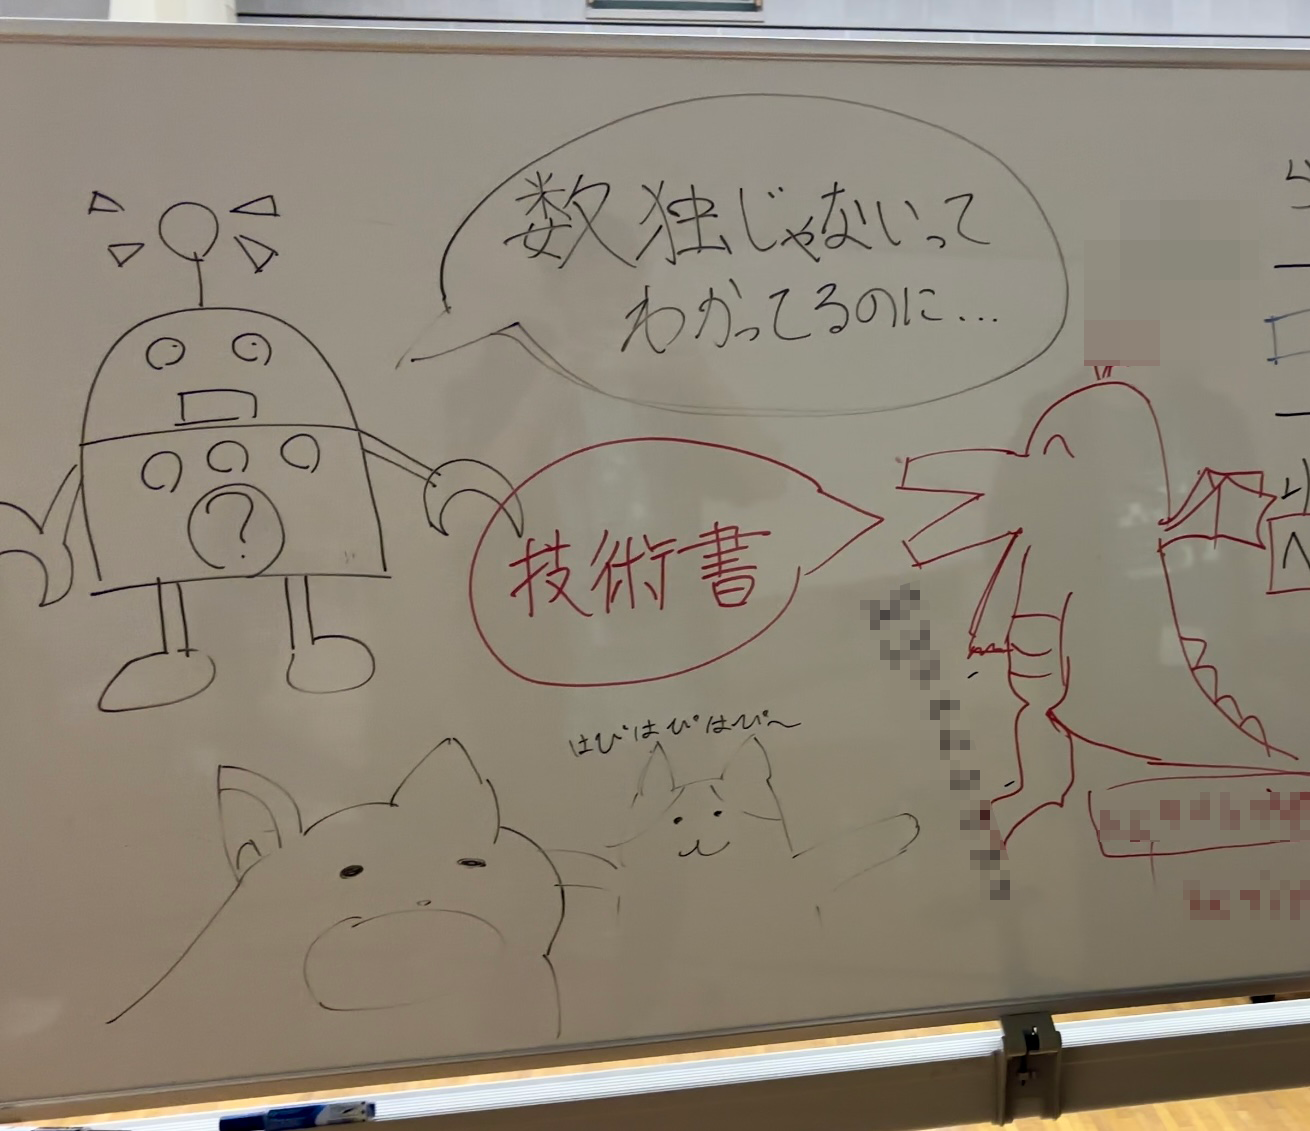 数独じゃないって
わかってるのに…
技術書
?
はぴはぴはぴ〜